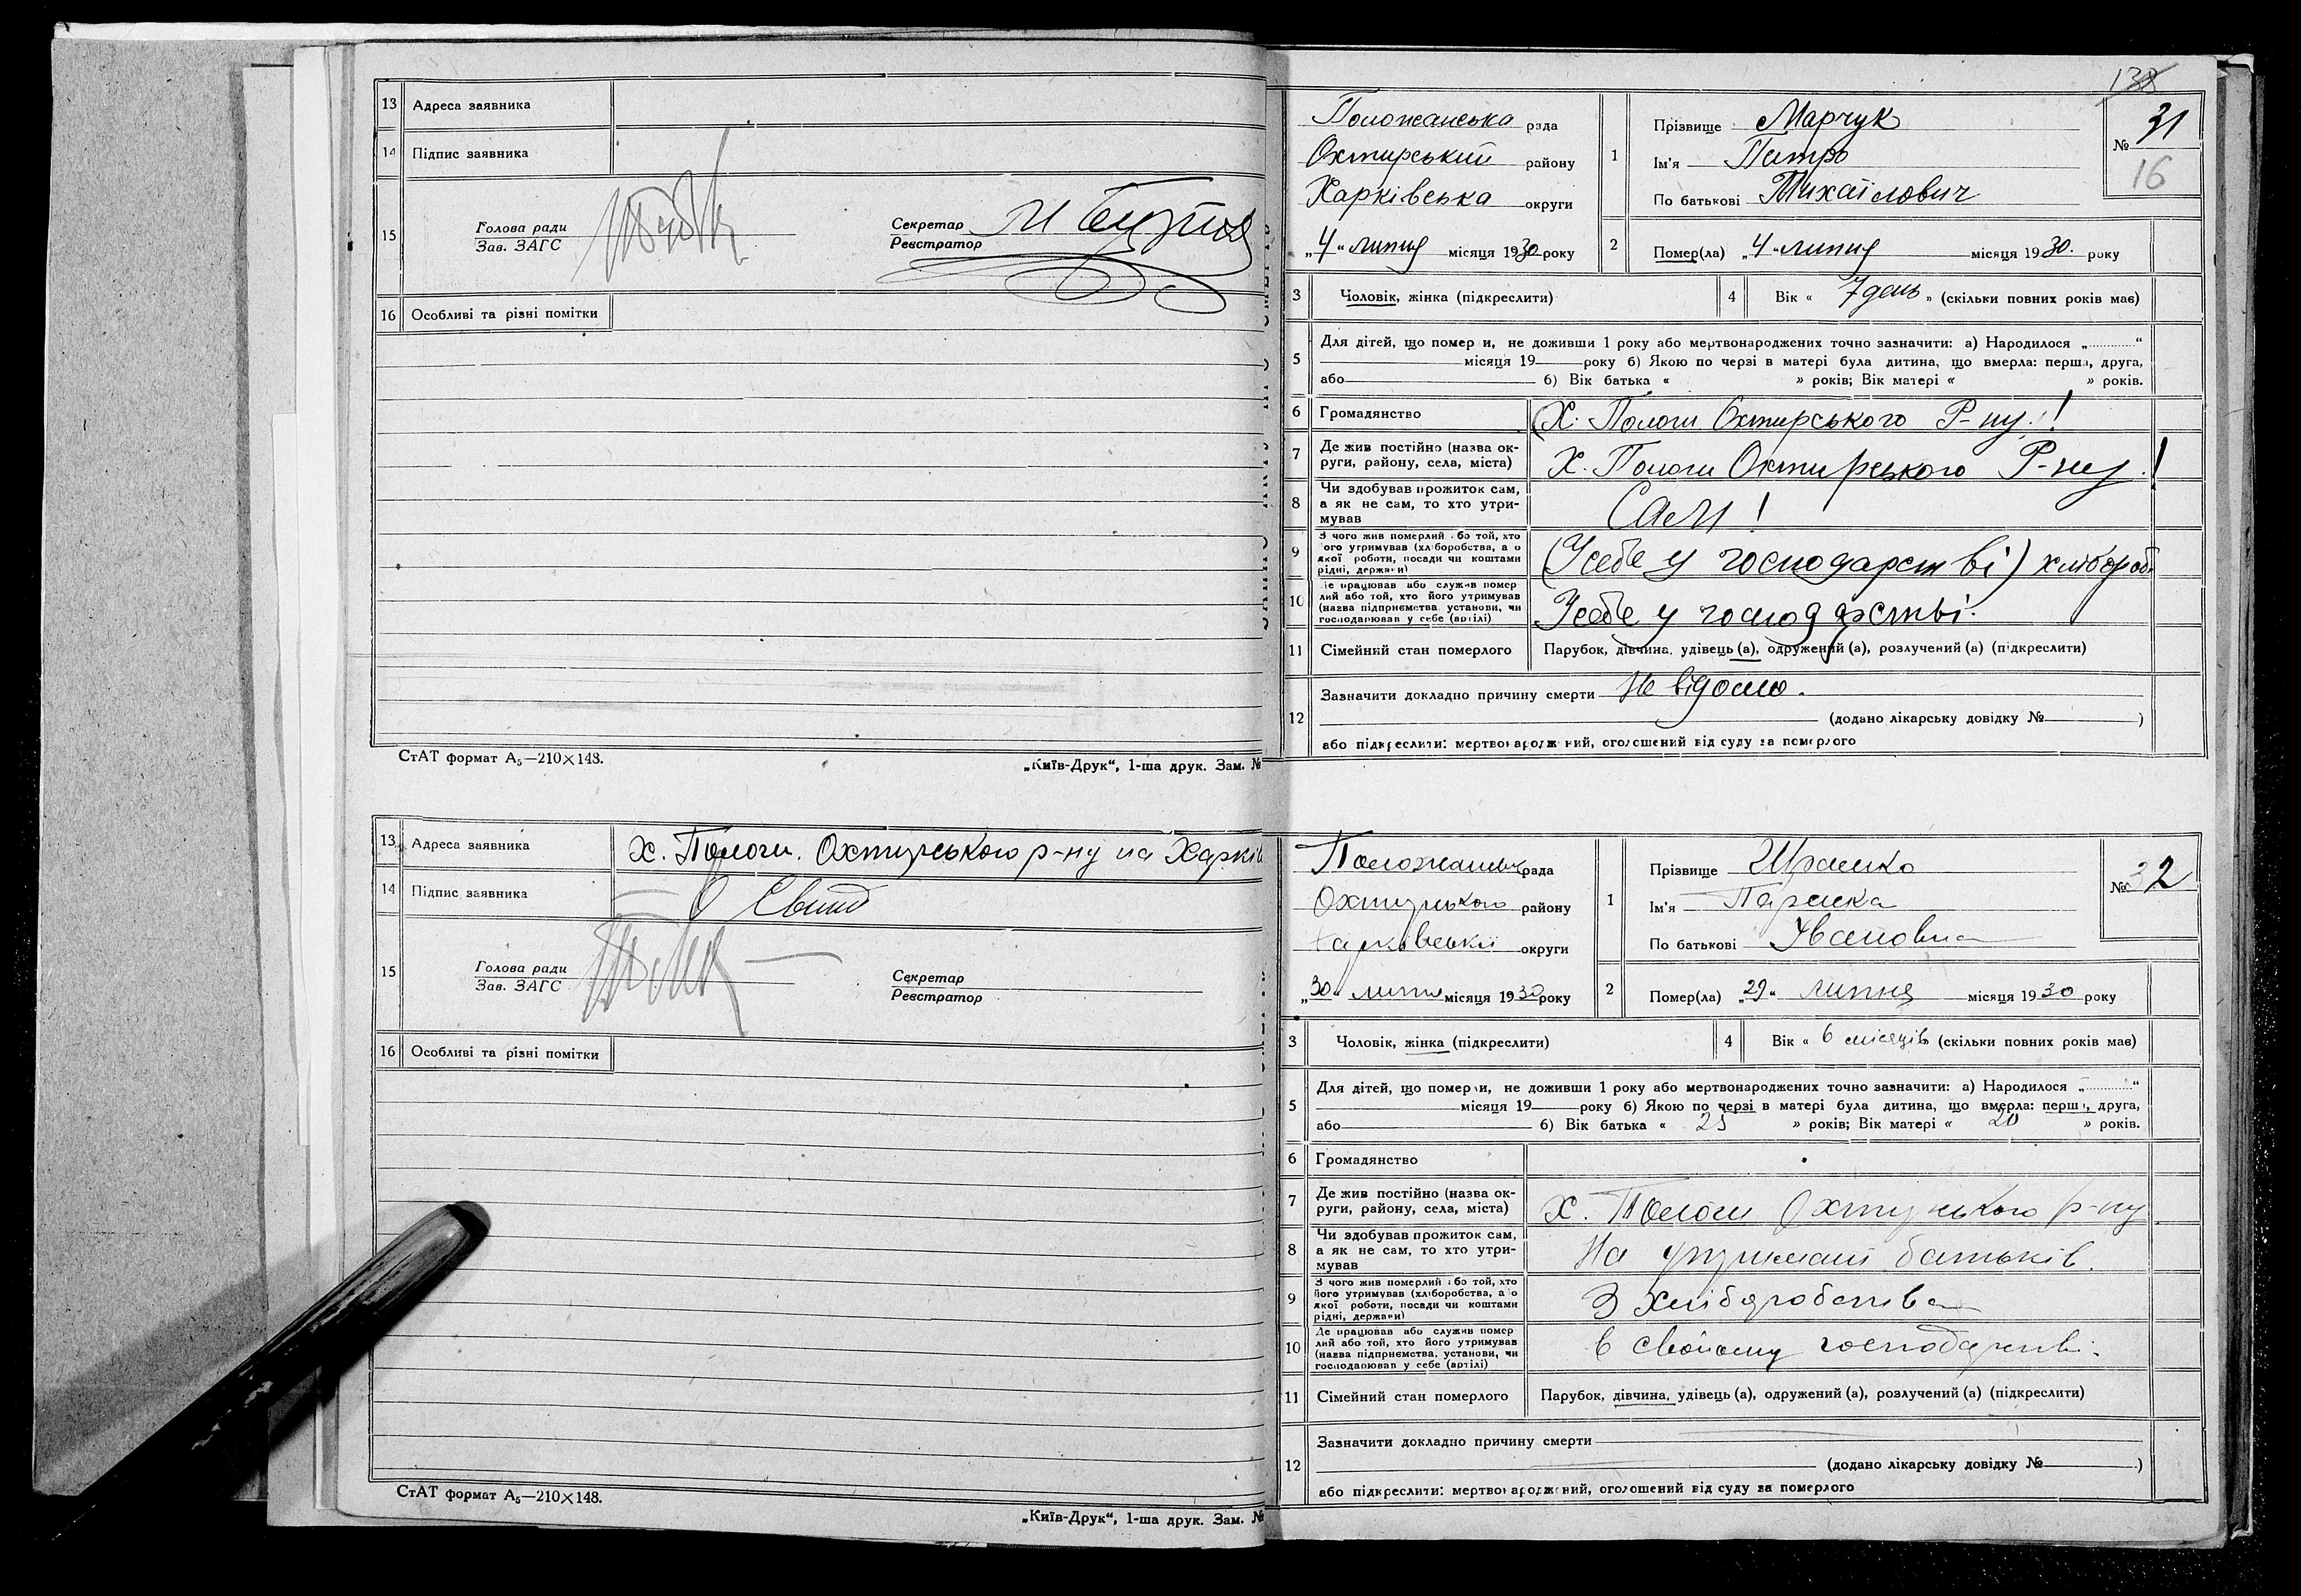 13 Адреса заявника
14 Підпис заявника
15 Голова ради
Зав. ЗАГС
Секретар
Реєстратор
16 Особливі та різні помітки
СтАТ формат А₅—210×148.
„Київ-Друк“, 1-ша друк. Зам. №
13 Адреса заявника х. Пологи. Охтирського р-ну на Харків
14 Підпис заявника
15 Голова ради
Зав. ЗАГС
Секретар
Реєстратор
16 Особливі та різні помітки
СтАТ формат А₅—210×148.
„Київ-Друк“, 1-ша друк. Зам. №
138
Положанська рада
Охтирський району
Харківська округи
„4“ липня місяця 1930 року
1 Прізвище Марчук
Ім'я Петро
По батькові Михайлович
№ 31
16
2 Помер(ла) „4“ липня місяця 1930. року
3 Чоловік, жінка (підкреслити)
4 Вік « 7 день » (скільки повних років має)
5 Для дітей, що померли, не доживши 1 року або мертвонароджених точно зазначити: а) Народилося „ “
місяця 19 року б) Якою по черзі в матері була дитина, що вмерла: перша, друга,
або б) Вік батька « » років; Вік матері « » років.
6 Громадянство Х. Пологи Охтирського Р-ну!
7 Де жив постійно (назва округи, району, села, міста) Х. Пологи Охтирського Р-ну!
8 Чи здобував прожиток сам,
а як не сам, то хто утри-
мував Сам!
9 З чого жив померлий або той, хто
його утримував (хліборобства, або
якої роботи, посади чи коштами
рідні, держави) (Усебе у господарстві) хлібороб
10 Де працював або служив помер
лий або той, хто його утримував
(назва підприємства, установи, чи
господарював у себе (артілі) Усебе у господарстві.
11 Сімейний стан померлого Парубок, дівчина, удівець (а), одружений (а), розлучений (а) (підкреслити)
12 Зазначити докладно причину смерти Не відомо.
(додано лікарську довідку № )
або підкреслити: мертвонароджений, оголошений від суду за померлого
рада
Охтирського району
Харківськії округи
„30“ липня місяця 1930 року
1 Прізвище
Ім'я Параска
По батькові Івановна
№ 32
2 Помер(ла) „29“ липня місяця 1930 року
3 Чоловік, жінка (підкреслити)
4 Вік « 6 місяців » (скільки повних років має)
5 Для дітей, що померли, не доживши 1 року або мертвонароджених точно зазначити: а) Народилося „ “
місяця 19 року б) Якою по черзі в матері була дитина, що вмерла: перша, друга,
або б) Вік батька « 25 » років; Вік матері « 20 » років.
6 Громадянство
7 Де жив постійно (назва округи, району, села, міста) х. Пологи Охтирського р-ну
8 Чи здобував прожиток сам,
а як не сам, то хто утри-
мував На утриманні батьків.
9 З чого жив померлий або той, хто
його утримував (хліборобства, або
якої роботи, посади чи коштами
рідні, держави) З хліборобства
10 Де працював або служив помер
лий або той, хто його утримував
(назва підприємства, установи, чи
господарював у себе (артілі) в своїому господарстві.
11 Сімейний стан померлого Парубок, дівчина, удівець (а), одружений (а), розлучений (а) (підкреслити)
12 Зазначити докладно причину смерти
(додано лікарську довідку № )
або підкреслити: мертвонароджений, оголошений від суду за померлого